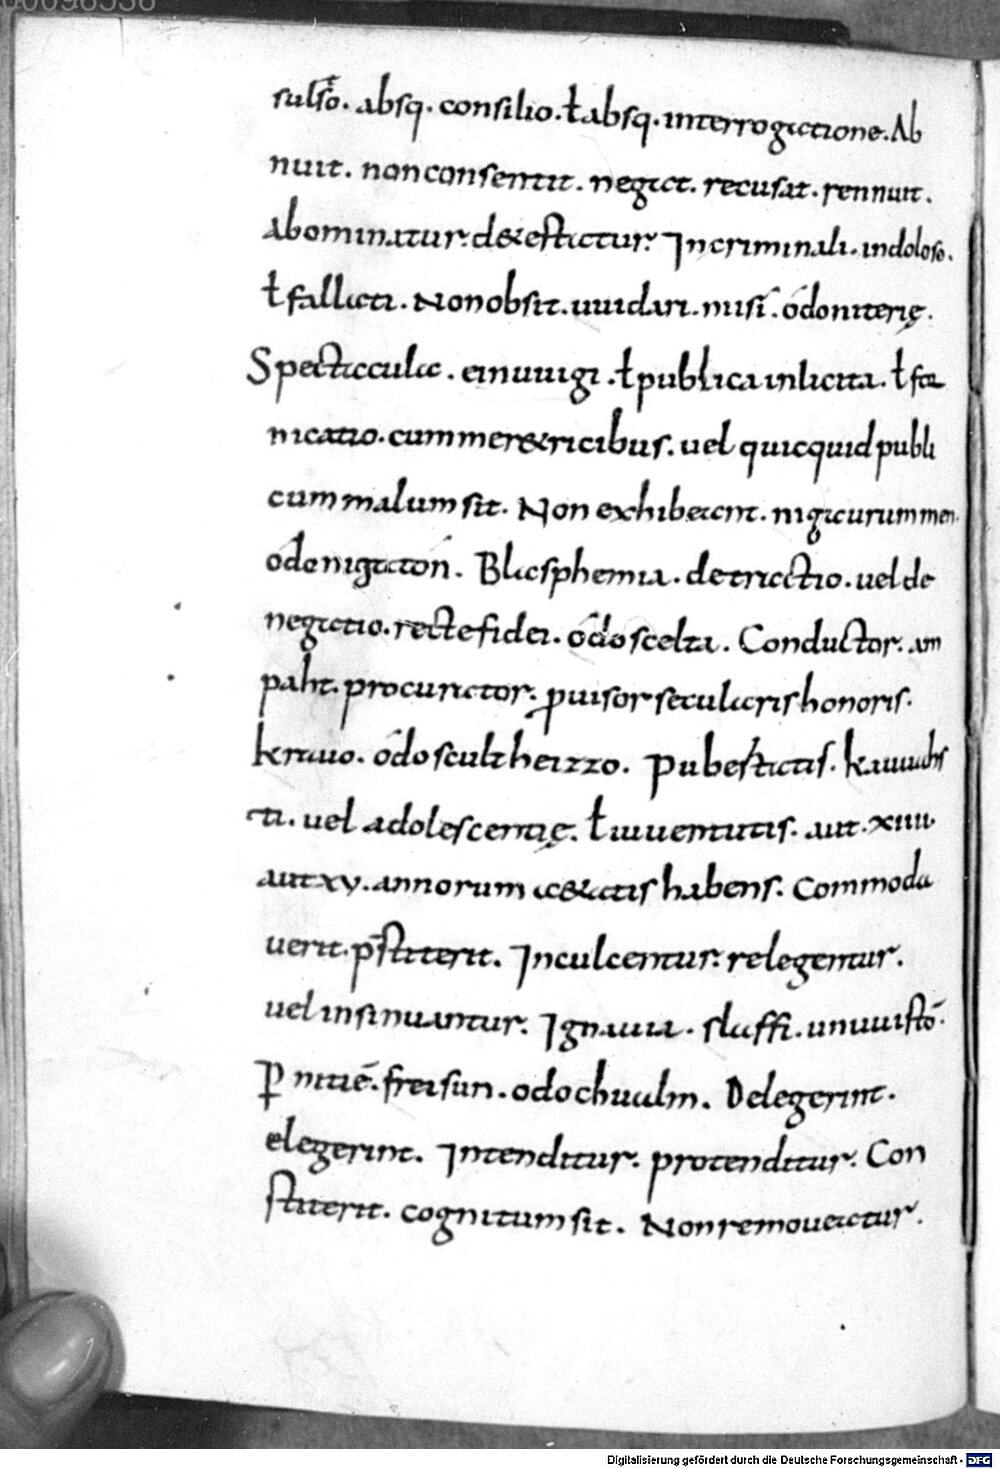 00096536
sulso. absq. consilio. ł absq. interrogatione. Ab
nuit. nonconsentit. negat. recusat. rennuit.
Abominatur. detestatur. Incriminali. indoloso.
ł fallaci. Nonobsit. uuidari. nisi. odoniterię.
Spectacula. einuuigi. ł publica inlicita. ł for
nicatio. cum meretricibus. uel quicquid publi
cum malum sit. Non exhibeant. nigicurummen
odo nigiton. Blasphemia. detractio. uel de
negatio. recte fidei. odo scelta. Conductor. am
paht. procurator. ꝓuisor secularis honoris.
krauo. odo scultheizzo. Pubestatis. kauuahs
ti. uel adolescentię. ł iuuentutis. aut. xiiii.
aut xv. annorum aetatis habens. Commoda
uerit. p̄stiterit. Inculcentur. relegentur.
uel insinuantur. Ignauia. slaffi. unuuistō.
P nitiē. freisun. odo chualm. Delegerint.
elegerint. Intenditur. protenditur. Con
stiterit. cognitum sit. Non remoueatur.
Digitalisierung gefördert durch die Deutsche Forschungsgemeinschaft - DFG